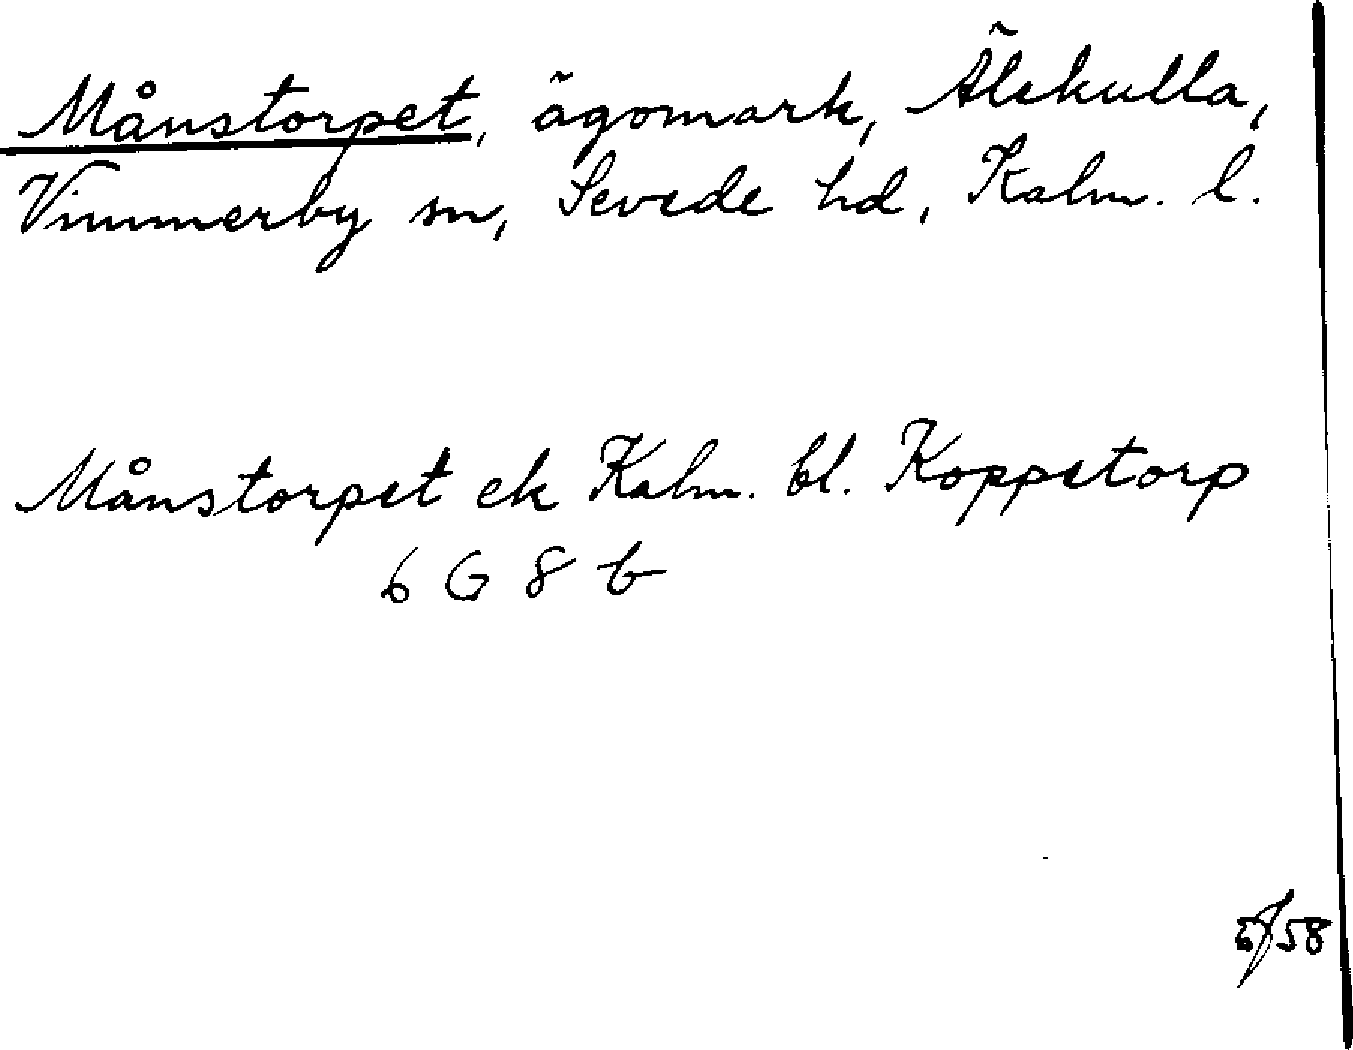 Månstorpet, ägomark, Älekulla,
Vimmerby sn, Sevede hd, Kalm. l.
Månstorpet ek Kalm. bl. Koppetorp
6 G 8 b